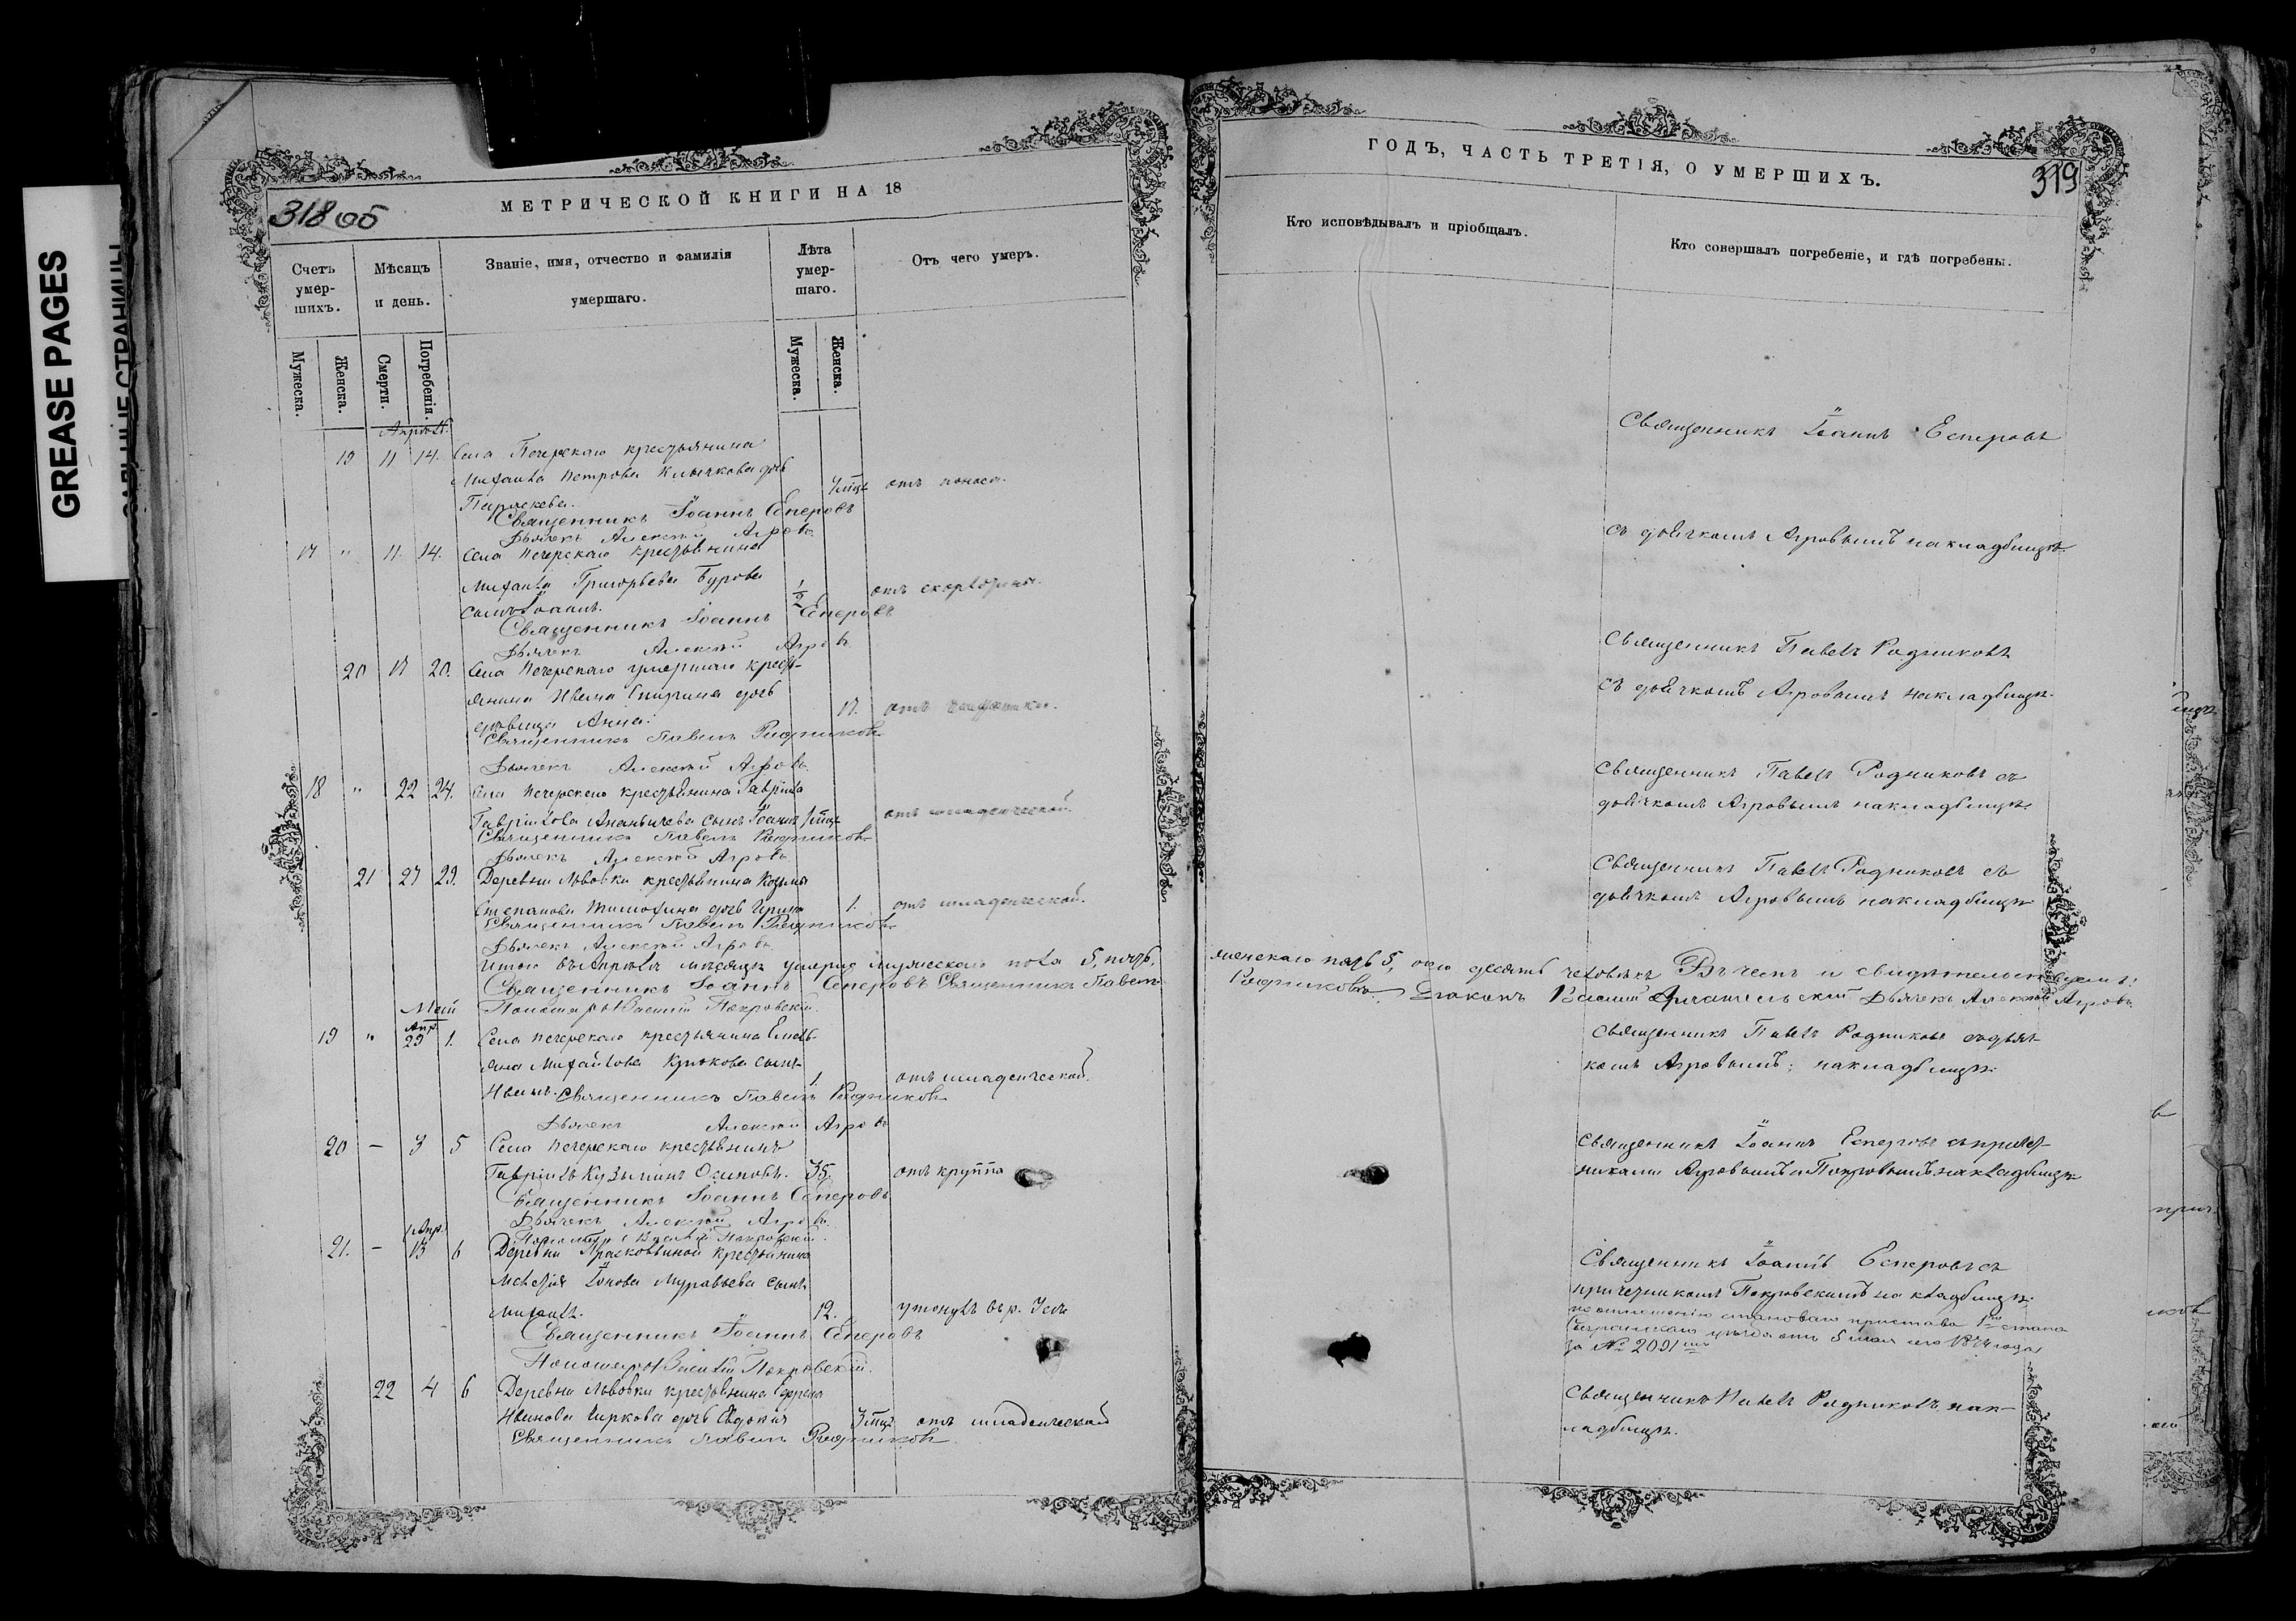 GREASE PAGES
МЕТРИЧЕСКОЙ КНИГИ НА 18
318 об
Счетъ умер-шихъ.
Мѣсяцъ и день.
Званіе, имя, отчество и фамилія умершаго.
Лѣта умер-шаго.
Отъ чего умеръ.
Мужеска.
Женска.
Смерти.
Погребенія.
Мужеска.
Женска.
19 11 14. Села Печерскаго крестьянина
Михаила Петрова Клычкова дочь
Параскева. отъ поноса.
Священникъ Іоаннъ Есперовъ
Дьячекъ Алексѣй Агровъ
17 " 11. 14. Села Печерскаго крестьянина
Михаила Григорьева Бурова
сынъ Іоаннъ. 1/2
Священникъ Іоаннъ Есперовъ
Дьячекъ Алексѣй Агровъ
20 17 20. Села Печерскаго умершаго кресть-
янина Ивана Спирина дочь
дѣвица Анна. 17. отъ
Священникъ Павелъ Родниковъ
Дьячекъ Алексѣй Агровъ
18 " 22 24. Села Печерскаго крестьянина Гавріила
Гаврилова Ананьичева сынъ Іоаннъ отъ младенческой.
Священникъ Павелъ Родниковъ
Дьячекъ Алексѣй Агровъ
21 27 29. Деревни Львовки крестьянина Козьмы
Степанова Тимофина дочь Ирина 1. отъ младенческой.
Священникъ Павелъ Родниковъ
Дьячекъ Алексѣй Агровъ
Итого въ Апрѣлѣ мѣсяцѣ умерло мужескаго пола 5,
Священникъ Іоаннъ Есперовъ Священникъ Павелъ
Пономарь Василій Покровскій.
Май
Апр.
19 " 29 1. Села Печерскаго крестьянина Емель-
яна Михайлова Крюкова сынъ
Иванъ. 1. отъ младенческой.
Священникъ Павелъ Родниковъ
Дьячекъ Алексѣй Агровъ
20 — 3 5 Села Печерскаго крестьянинъ
Гавріилъ Кузьминъ Осиповъ. 35. отъ круппа
Священникъ Іоаннъ Есперовъ
Дьячекъ Алексѣй Агровъ
Пономарь Василій Покровскій.
Апр.
21. — 13 6 Деревни Прасковьиной крестьянина
Іонова Муравьева сынъ
Михаилъ. 12. утонулъ въ р. Усѣ
Священникъ Іоаннъ Есперовъ
Пономарь Василій Покровскій.
22 4 6 Деревни Львовки крестьянина Ефрема
Иванова Чиркова дочь Евдокія отъ младенческой
Священникъ Павелъ Родниковъ
ГОДЪ, ЧАСТЬ ТРЕТІЯ, О УМЕРШИХЪ.
319
Кто исповѣдывалъ и пріобщалъ.
Кто совершалъ погребеніе, и гдѣ погребены.
Священникъ Іоаннъ Есперовъ
съ дьячкомъ Агровымъ на кладбищѣ.
Священникъ Павелъ Родниковъ
съ дьячкомъ Агровымъ на кладбищѣ.
Священникъ Павелъ Родниковъ съ
дьячкомъ Агровымъ на кладбищѣ
Священникъ Павелъ Родниковъ съ
дьячкомъ Агровымъ на кладбищѣ
женскаго 5, всего десять человѣкъ
Родниковъ. Діаконъ Василій Архангельскій Дьячекъ Алексѣй Агровъ
Священникъ Павелъ Родниковъ съ дьяч-
комъ Агровымъ; на кладбищѣ.
Священникъ Іоаннъ Есперовъ съ причет-
никами Агровымъ и Покровскимъ на кладбищѣ
Священникъ Іоаннъ Есперовъ съ
причетникомъ Покровскимъ на кладбищѣ.
по отношенію становаго пристава 1го стана
Сызранскаго уѣзда отъ 5 мая сего 1874 года
за № 2091
Священникъ Павелъ Родниковъ на к-
ладбищѣ.